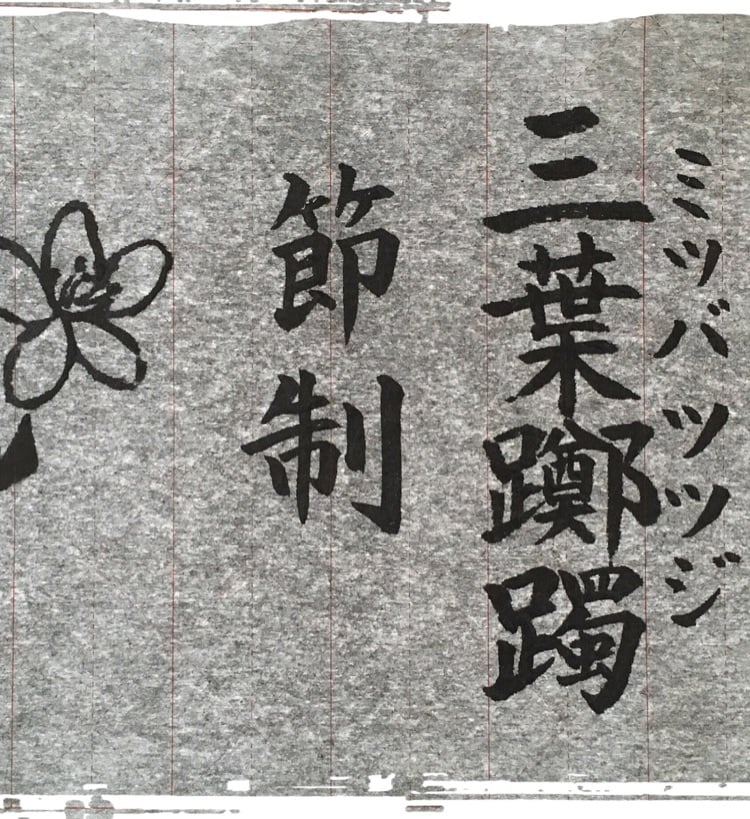 ミツバツツジ
三葉躑躅
節制